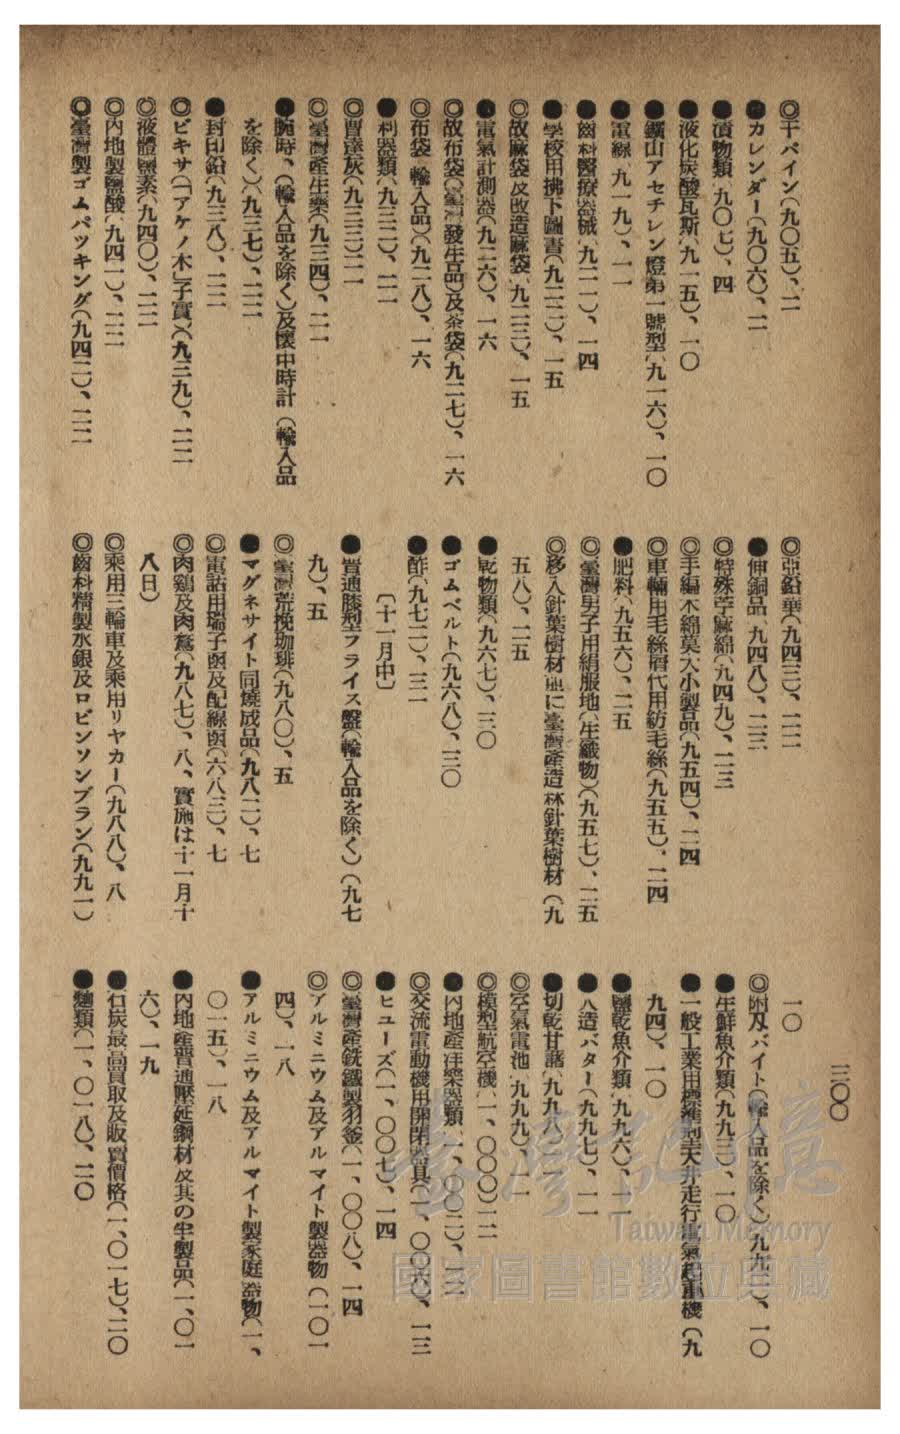 三〇〇
◎干パイン(九〇五)、二
●カレンダー(九〇六)、二
●漬物類(九〇七)、四
●液化炭酸瓦斯(九一五)、一〇
●鑛山アセチレン燈第一號型(九一六)、一〇
●電線(九一九)、一一
●齒科醫療器械(九二一)、一四
●學校用拂下圖書(九二二)、一五
◎故麻袋及改造麻袋(九二三)、一五
●電氣計測器(九二六)、一六
◎故布袋(臺灣發生品)及茶袋(九二七)、一六
◎布袋(輸入品)(九二八)、一六
●利器類(九三二)、二一
◎曹達灰(九三三)二一
◎臺灣產生藥(九三四)、二一
●腕時、(輸入品を除く)及懷中時計(輸入品
を除く)(九三七)、二二
●封印鉛(九三八)、二二
◎ビキサ(「アケノ木」子實)(九三九)、二二
◎液體鹽素(九四〇)、二二
◎內地製鹽酸(九四一)、二二
◎臺灣製ゴムパツキング(九四二)、二二
◎亞鉛華(九四三)、二二
●伸銅品(九四八)、二三
◎特殊苧麻綿(九四九)、二三
◎手編木綿莫大小製品(九五四)、二四
◎車輛用毛絲屑代用紡毛絲(九五五)、二四
●肥料(九五六)、二五
◎臺灣男子用絹服地(生織物)(九五七)、二五
◎移入針葉樹材並に臺灣產造林針葉樹材(九
五八)、二五
●乾物類(九六七)、三〇
●ゴムベルト(九六八)、三〇
●酢(九七二)、三一
〔十一月中〕
●普通膝型フライス盤(輸入品を除く)(九七
九)、五
◎臺灣荒挽珈琲(九八〇)、五
●マグネサイト同燒成品(九八二)、七
◎電話用端子函及配線函(六八三)、七
◎肉鷄及肉鶩(九八七)、八、實施は十一月十
八日)
◎乘用三輪車及乘用リヤカー(九八八)、八
◎齒科精製水銀及ロビンソンブラン(九九一)
一〇
◎附刄バイト(輸入品を除く)(九九二)、一〇
●生鮮魚介類(九九三)、一〇
●一般工業用標準型天井走行電氣起重機(九
九四)、一〇
●鹽乾魚介類(九九六)、一一
●人造バター(九九七)、一一
●切乾甘藷(九九八)、一一
◎空氣電池(九九九)、一一
◎模型航空機(一、〇〇〇)一二
●內地產洋樂器類(一、〇〇二)、一二
◎交流電動機用開閉器具(一、〇〇六)、一三
●ヒューズ(一、〇〇七)、一四
◎臺灣產銑鐵製羽釜(一、〇〇八)、一四
◎アルミニウム及アルマイト製器物(一〇一
四)、一八
●アルミニウム及アルマイト製家庭器物(一、
〇一五)、一八
●內地產普通壓延鋼材及其の半製品(一、〇一
六)、一九
●石炭最高買取及販賣價格(一、〇一七)、二〇
●麵類(一、〇一八)、二〇
臺灣記憶
Taiwan Memory
國家圖書館數位典藏